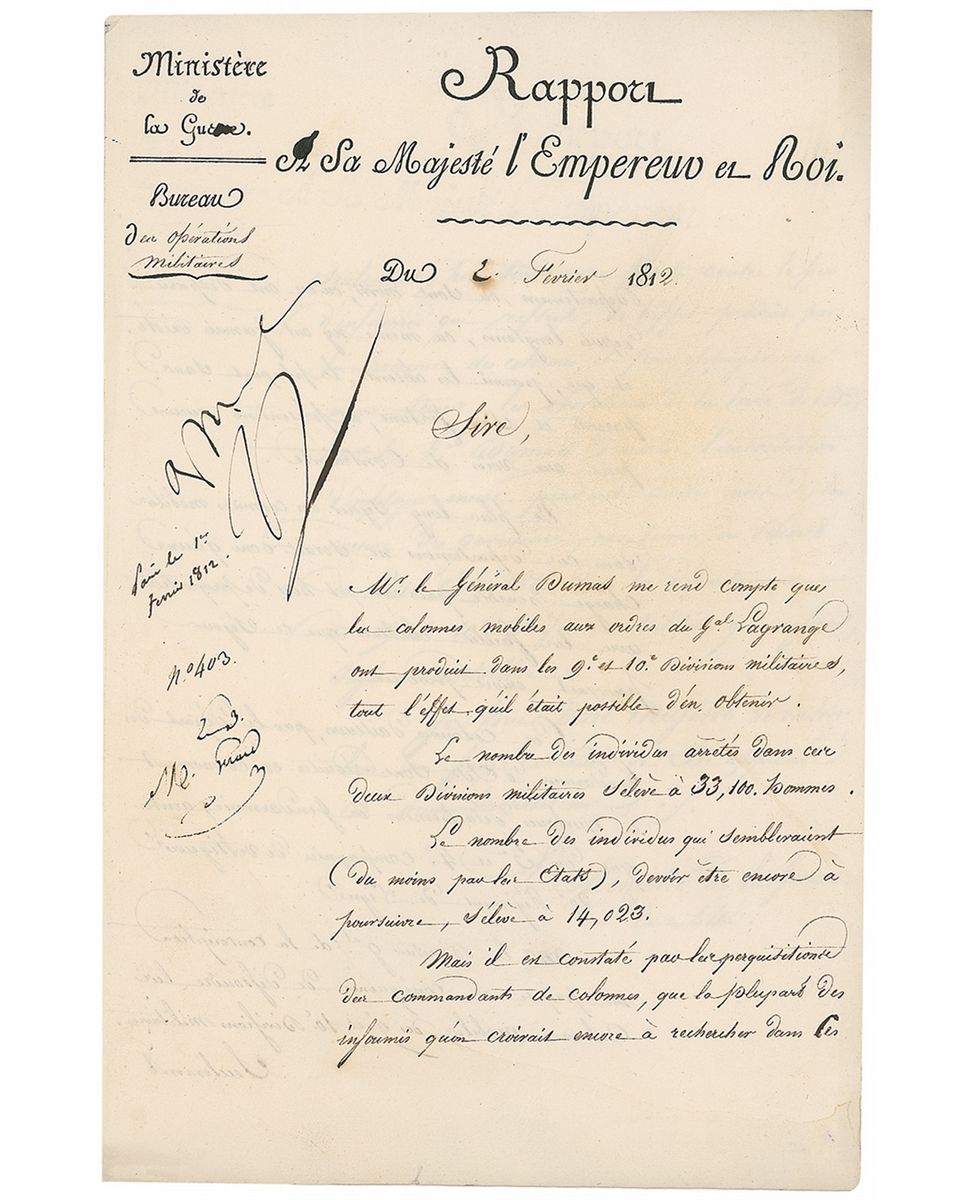 Ministère
de
la Guerre.
Bureau
des opérations
militaires
Rapport
A Sa Majesté l'Empereur et Roi.
Du 2. Février 1812.
Paris le 1er
fevrier 1812.
N.o 403.
Sire,
Mr. le Général Dumas me rend compte que
les colonnes mobiles aux ordres du Gal. Lagrange
ont produit dans les 9.e et 10.e Divisions militaires,
tout l'effet qu'il était possible d'en obtenir.
Le nombre des individus arrêtés dans ces
deux Divisions militaires s'élève à 33,100. hommes.
Le nombre des individus qui sembleraient
(du moins par les Etats), devoir être encore à
poursuivre, s'élève à 14,023.
Mais il est constaté par les perquisitions
des commandants de colonnes, que la plupart des
insoumis qu'on croirait encore à rechercher dans ces